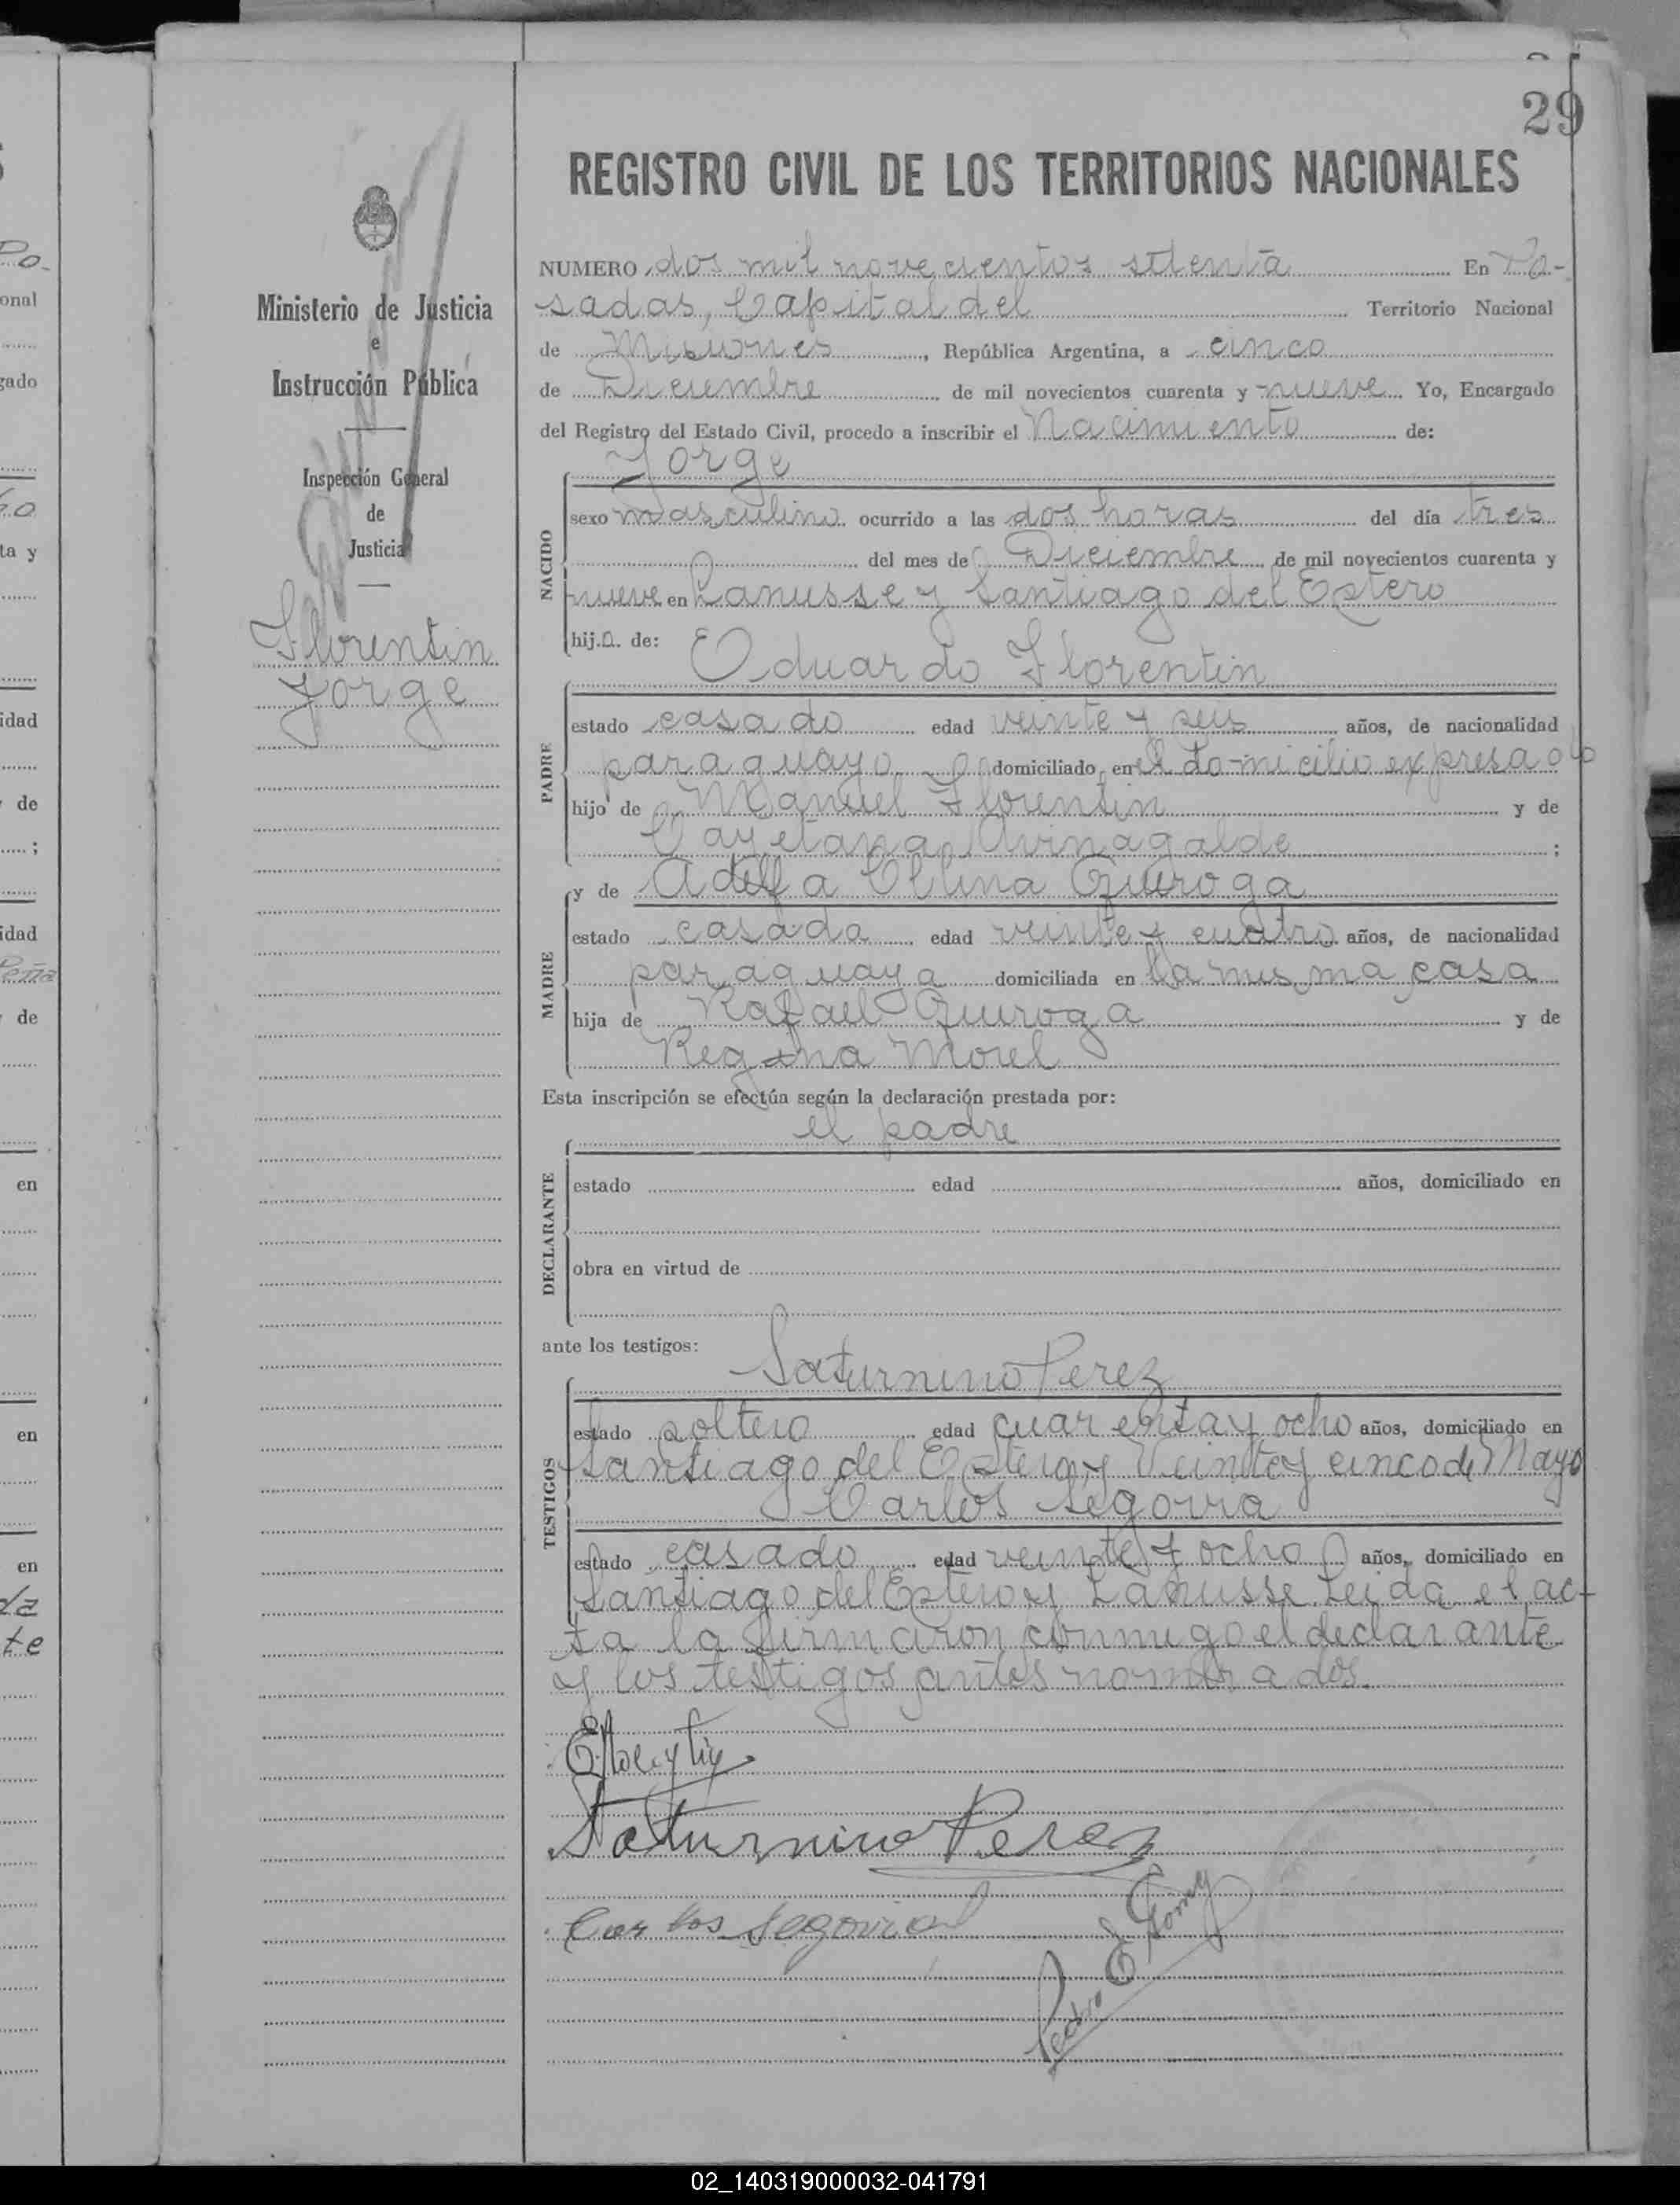 29
REGISTRO CIVIL DE LOS TERRITORIOS NACIONALES
Ministerio de Justicia
e
Instrucción Pública
Inspección General
de
Justicia
Florentin
Jorge
NUMERO dos mil novecientos setenta En Po-
sadas, Capital del Territorio Nacional
de Misiones, República Argentina, a cinco
de Diciembre de mil novecientos cuarenta y nueve Yo, Encargado
del Registro del Estado Civil, procedo a inscribir el Nacimiento de:
Jorge
NACIDO
sexo masculino ocurrido a las dos horas del día tres
del mes de Diciembre de mil novecientos cuarenta y
nueve en Lanusse y Santiago del Estero
hijo de:
Eduardo Florentin
PADRE
estado casado edad veinte y seis años, de nacionalidad
paraguayo domiciliado en el domicilio expresado
hijo de Manuel Florentin y de
Cayetana ;
y de Adelfa Quiroga
MADRE
estado casada edad veinte y cuatro años, de nacionalidad
paraguaya domiciliada en la misma casa
hija de Rafael Quiroga y de
Regina Morel
Esta inscripción se efectúa según la declaración prestada por:
el padre
DECLARANTE
estado edad años, domiciliado en
obra en virtud de
ante los testigos:
Saturnino Perez
TESTIGOS
estado soltero edad cuarenta y ocho años, domiciliado en
Santiago del Estero y Veinte y cinco de Mayo
Carlos Segovia
estado casado edad veinte y ocho años, domiciliado en
Santiago del Estero y Lanusse. Leida el ac-
ta la firmaron conmigo el declarante
y los testigos antes nombrados.
Saturnino Perez
Carlos Segovia
Pedro
02_140319000032-041791